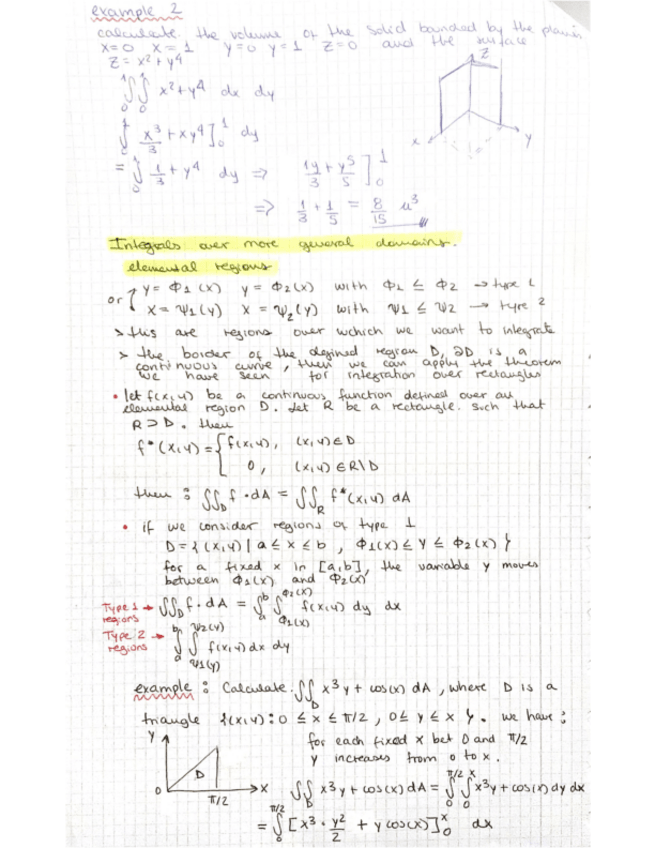 example 2
calculate the volume of the solid bounded by the planes
x=0 x=1 y=0 y=1 z=0 and the surface
z = x² + y⁴
∫₀¹∫₀¹ x² + y⁴ dx dy
∫₀¹ x³/3 + xy⁴]₀¹ dy
= ∫₀¹ 1/3 + y⁴ dy ⇒ 1y/3 + y⁵/5]₀¹
⇒ 1/3 + 1/5 = 8/15 u³
z
x
y
Integrals over more general domains.
elemental regions
or { y = Φ1(x) y = Φ2(x) with Φ1 ≤ Φ2 → type 1
x = Ψ1(y) x = Ψ2(y) with Ψ1 ≤ Ψ2 → type 2
> this are regions over wchich we want to integrate
> the border of the defined region D, ∂D is a
continuous curve, then we can apply the theorem
we have seen for integration over rectangles
• let f(x,y) be a continuous function defined over an
elemental region D. Let R be a rectangle such that
R ⊃ D. then
f*(x,y) = { f(x,y), (x,y) ∈ D
0, (x,y) ∈ R\D
then : ∬_D f · dA = ∬_R f*(x,y) dA
• if we consider regions of type 1
D = {(x,y) | a ≤ x ≤ b, Φ1(x) ≤ y ≤ Φ2(x)}
for a fixed x in [a,b], the variable y moves
between Φ1(x) and Φ2(x)
Type 1 regions → ∬_D f · dA = ∫ₐᵇ ∫_{Φ1(x)}^{Φ2(x)} f(x,y) dy dx
Type 2 regions → ∫ₐᵇ ∫_{Ψ1(y)}^{Ψ2(y)} f(x,y) dx dy
example : Calculate ∬_D x³y + cos(x) dA, where D is a
triangle {(x,y) : 0 ≤ x ≤ π/2, 0 ≤ y ≤ x}. we have :
for each fixed x bet 0 and π/2
y increases from 0 to x.
y
D
0
π/2
x
∬_D x³y + cos(x) dA = ∫₀^{π/2} ∫₀ˣ x³y + cos(x) dy dx
= ∫₀^{π/2} [x³ · y²/2 + y cos(x)]₀ˣ dx